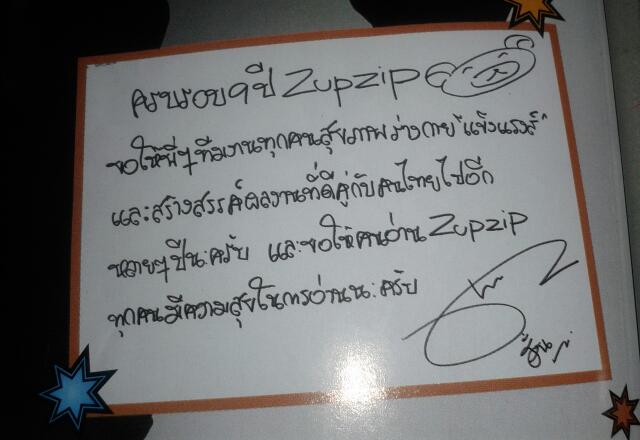 ครบรอบ 9 ปี Zupzip
ขอให้พี่ๆทีมงานทุกคนสุขภาพร่างกาย "แข็งแรงส์"
และสร้างสรรค์ผลงานที่ดีคู่กับคนไทยไปอีก
หลายๆปีนะครับ และขอให้คนอ่าน Zupzip
ทุกคนมีความสุขในการอ่านนะครับ